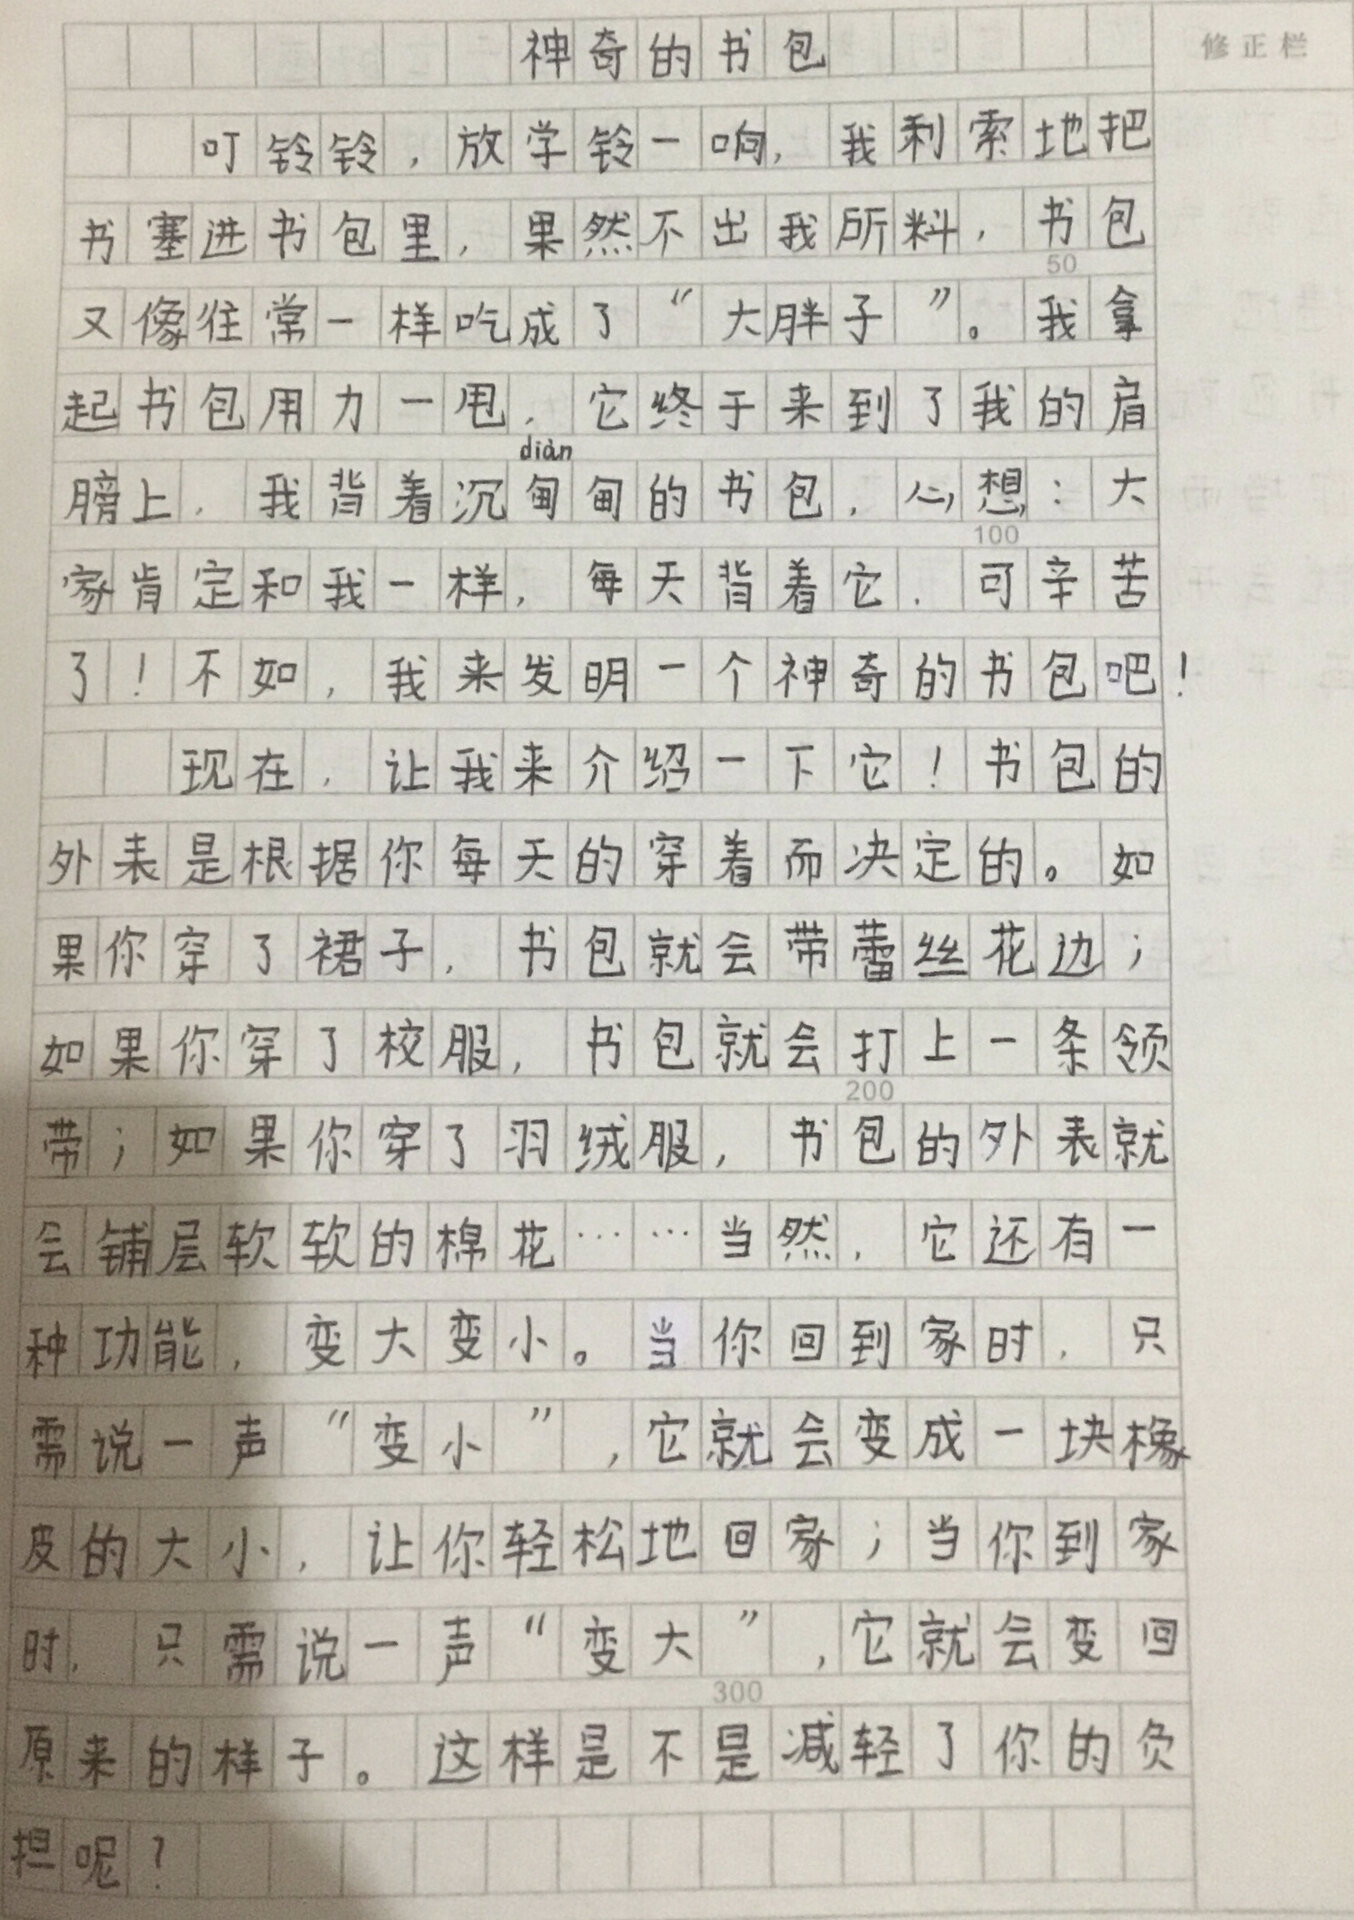 神奇的书包
修正栏
叮铃铃，放学铃一响，我利索地把
书塞进书包里，果然不出我所料，书包
50
又像往常一样吃成了“大胖子”。我拿
起书包用力一甩，它终于来到了我的肩
diàn
膀上，我背着沉甸甸的书包，心想：大
100
家肯定和我一样，每天背着它，可辛苦
了！不如，我来发明一个神奇的书包吧！
现在，让我来介绍一下它！书包的
外表是根据你每天的穿着而决定的。如
果你穿了裙子，书包就会带蕾丝花边；
如果你穿了校服，书包就会打上一条领
200
带；如果你穿了羽绒服，书包的外表就
会铺层软软的棉花……当然，它还有一
种功能，变大变小。当你回到家时，只
需说一声“变小”，它就会变成一块橡
皮的大小，让你轻松地回家；当你到家
时，只需说一声“变大”，它就会变回
300
原来的样子。这样是不是减轻了你的负
担呢？